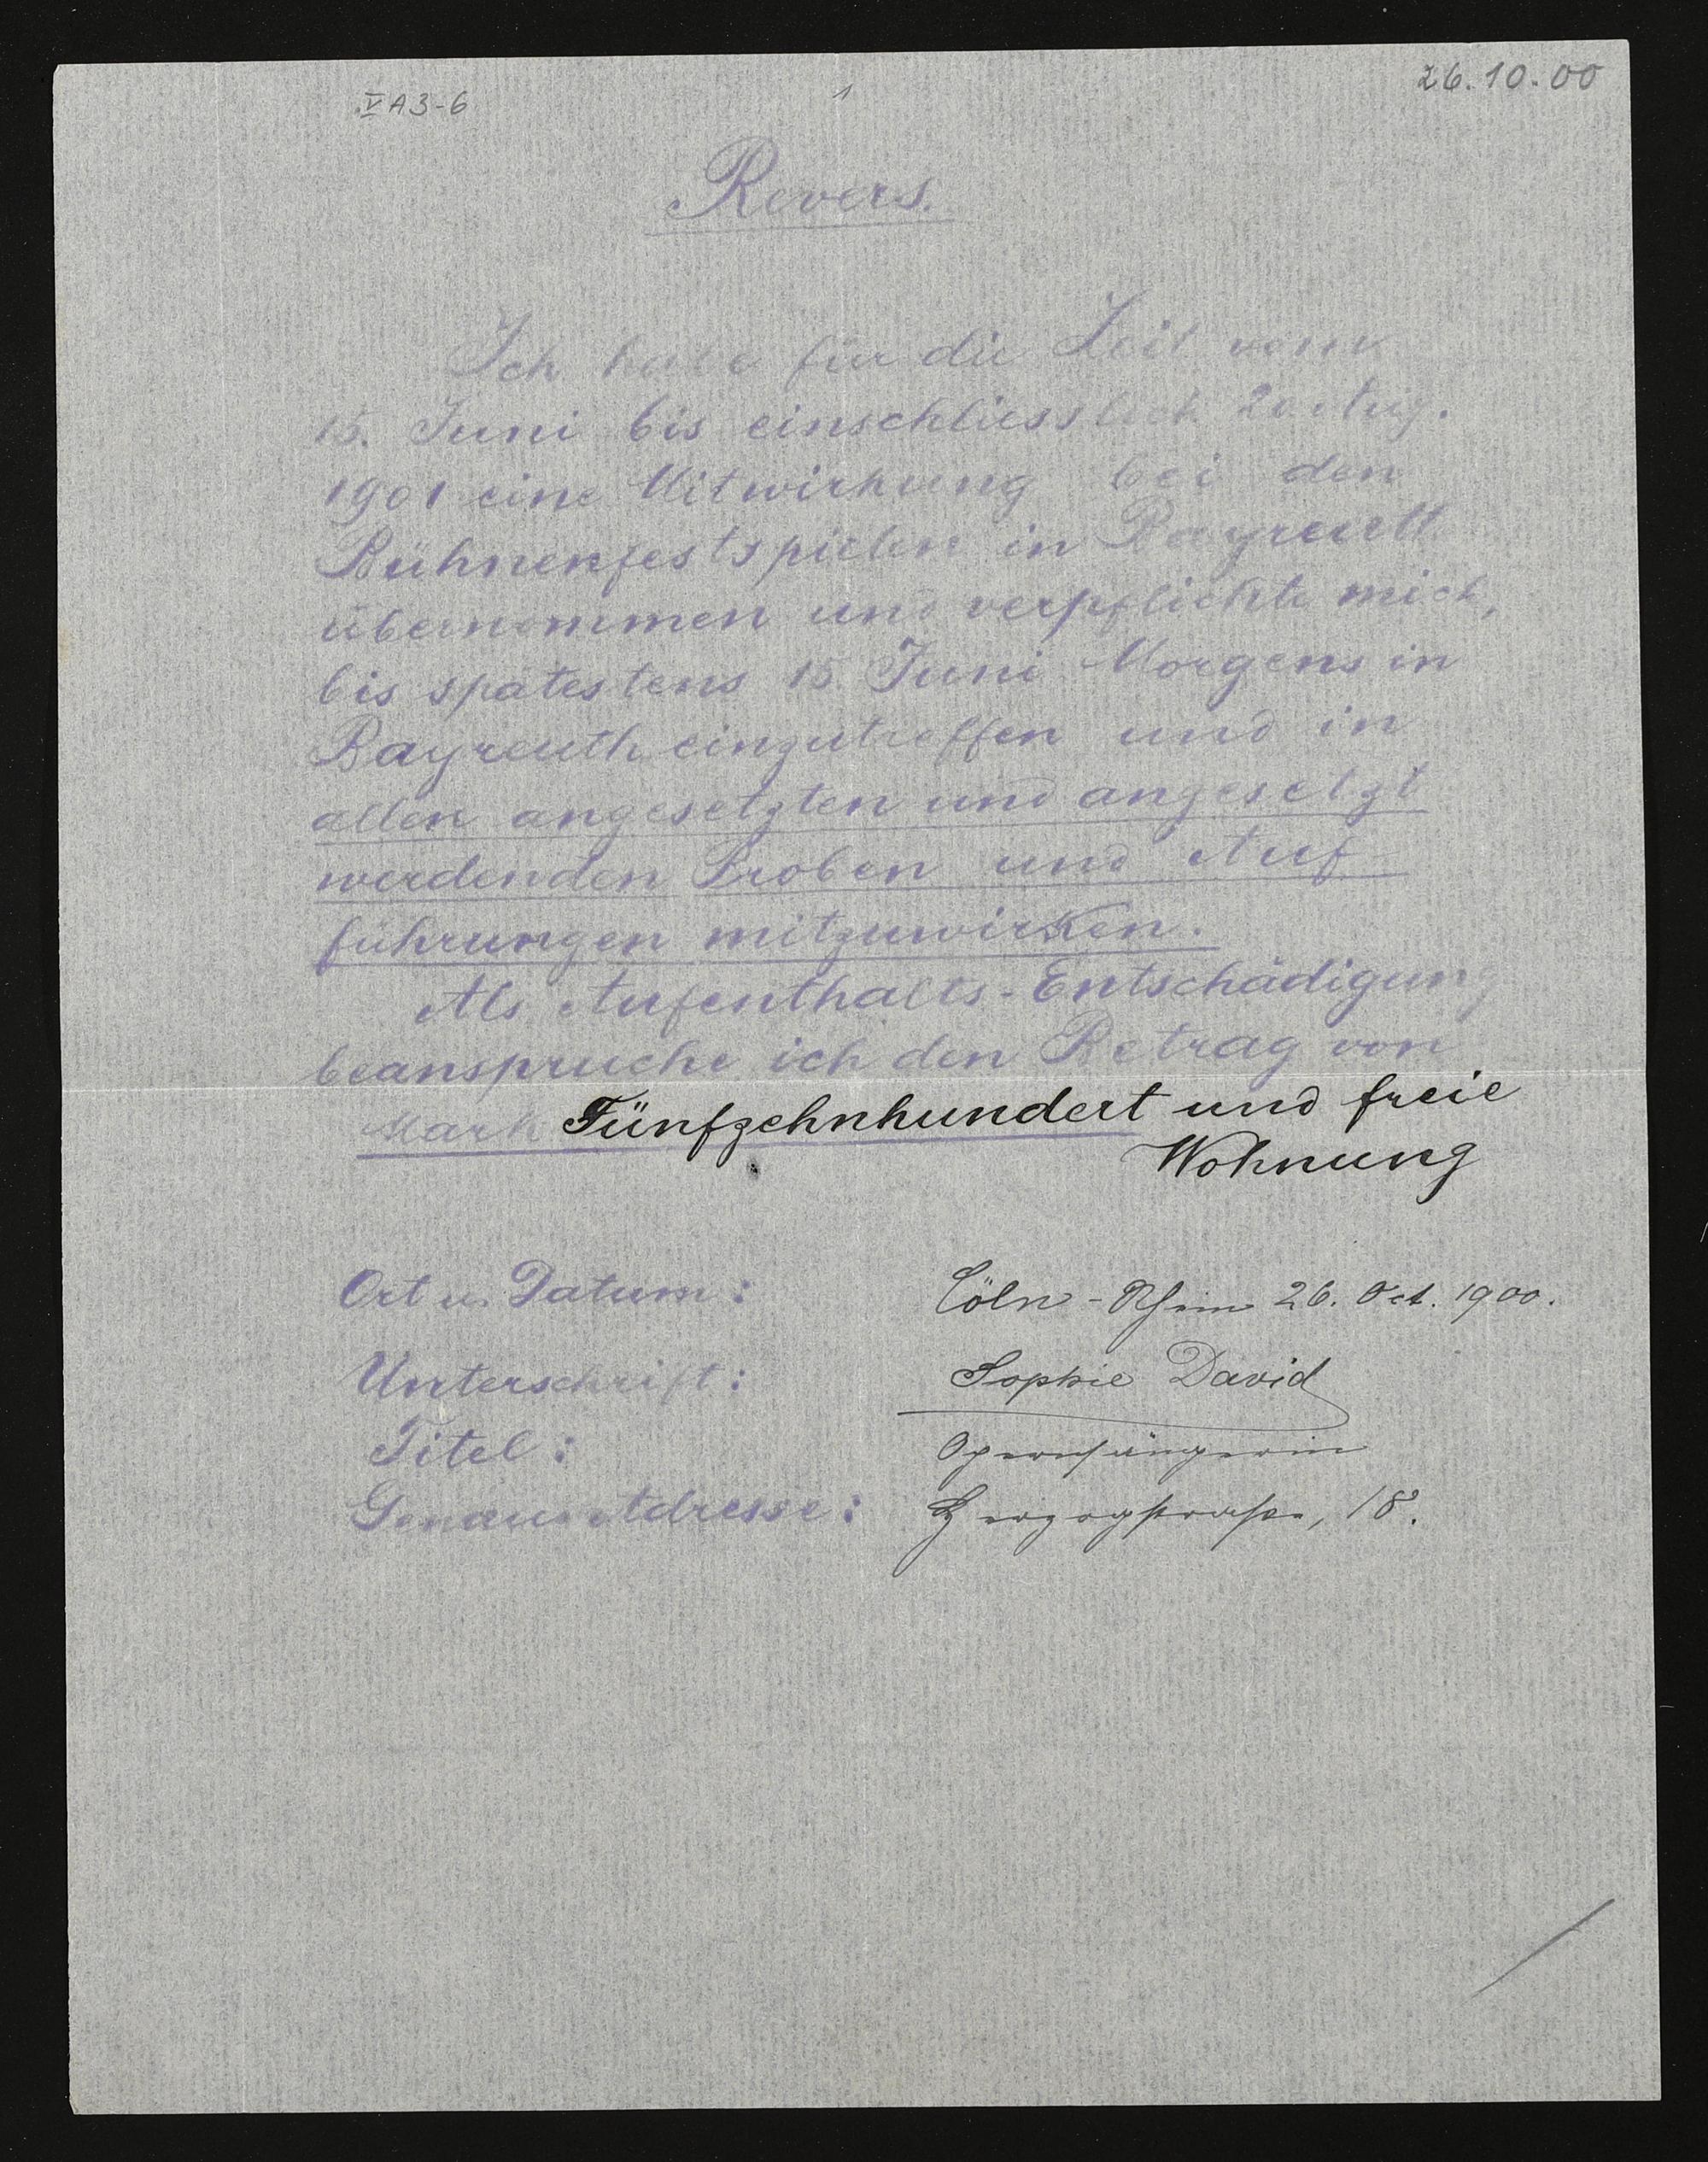 V A3-6
1
26.10.00
Revers.
Ich habe für die Zeit vom
15. Juni bis einschliesslich 20 Aug.
1901 eine Mitwirkung bei den
Bühnenfestspielen in Bayreuth
übernommen und verpflichte mich,
bis spätestens 15. Juni Morgens in
Bayreuth einzutreffen und in
allen angesetzten und angesetzt
werdenden Proben und Auf-
führungen mitzuwirken.
Als Aufenthalts-Entschädigung
beanspruche ich den Betrag von
Mark Fünfzehnhundert und freie
Wohnung
Ort u. Datum: Cöln - Rhein 26. Oct. 1900.
Unterschrift: Sophie David
Titel: Opernsängerin
Genaue Adresse: Herzogstraße, 18.